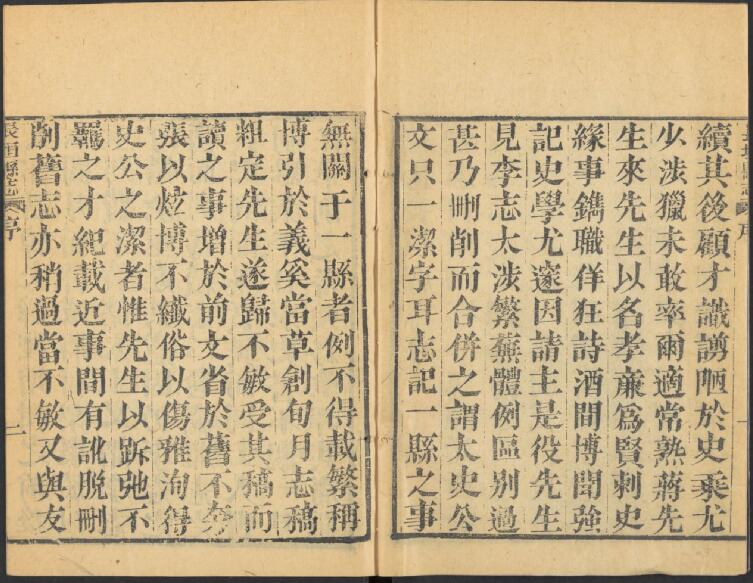 續其後顧才識謭陋於史乘尤
少涉獵未敢率爾適常熟蔣先
生來先生以名孝廉爲賢刺史
緣事鐫職佯狂詩酒間博聞強
記史學尤邃因請主是役先生
見李志太涉繁蕪體例區別過
甚乃刪削而合併之謂太史公
文只一潔字耳志記一縣之事
無關于一縣者例不得載繁稱
博引於義奚當草創旬月志稿
粗定先生遂歸不敏受其稿而
讀之事增於前文省於舊不夸
張以炫博不纖俗以傷雅洵得
史公之潔者惟先生以跅弛不
羈之才紀載近事間有訛脫刪
削舊志亦稍過當不敏又與友
長垣縣志 序 二